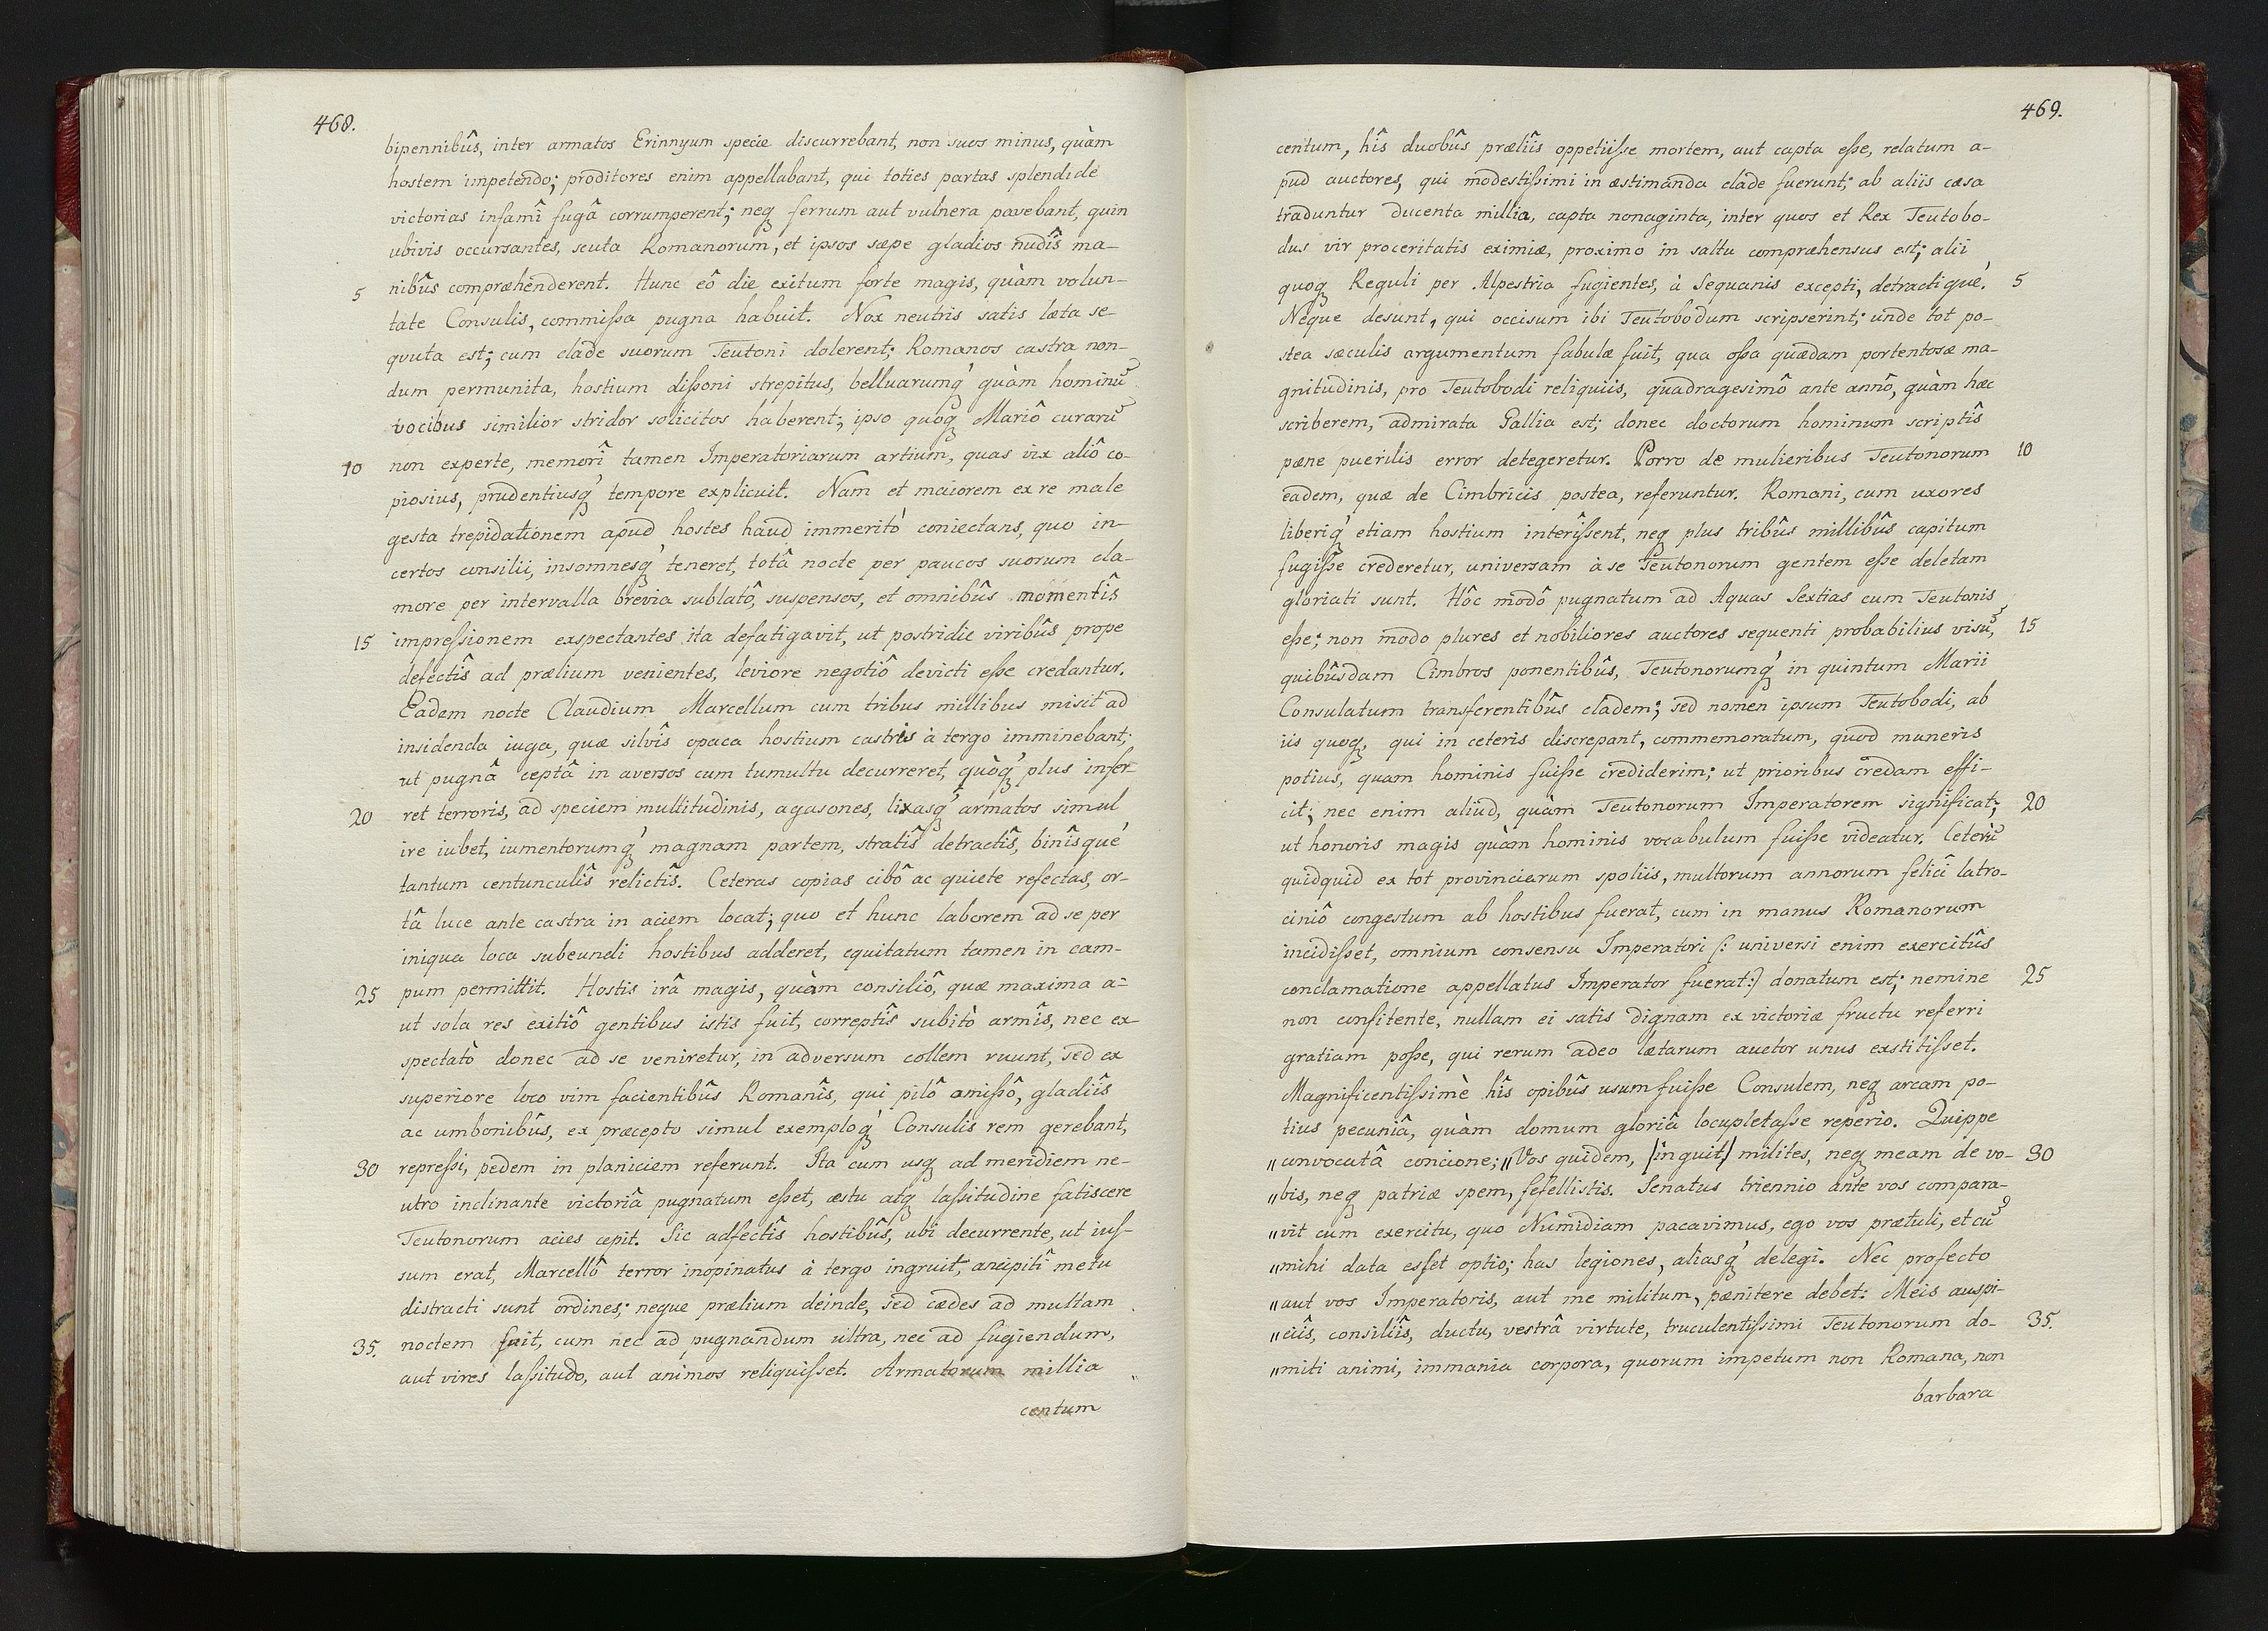 468.
bipennibûs, inter armatos Erinnyum specie discurrebant, non suos minus, quàm
hostem impetendo; proditores enim appellabant, qui toties partas splendidè
victorias infamî fugâ corrumperent; neq ferrum aut vulnera pavebant, quin
ubivis occursantes, scuta Romanorum, et ipsos sæpe gladios nudîs ma-
5 nibûs compræhenderent. Hunc eô die exitum forte magis, quàm volun-
tate Consulis, commißa pugna habuit. Nox neutris satis læta se-
quuta est; cum clade suorum Teutoni dolerent; Romanos castra non-
dum permunita, hostium dißoni strepitus, belluarumq́ quàm hominũ
vocibus similior stridor solicitos haberent; ipso quoq Mariô curarũ
10 non experte, memorî tamen Imperatoriarum artium, quas vix aliô co-
piosius, prudentiusq́ tempore explicuit. Nam et maiorem ex re male
gesta trepidationem apud hostes haud immeritò coniectans, quo in-
certos consilii, insomnesq́ teneret, totâ nocte per paucos suorum cla-
more per intervalla brevia sublatô, suspensos, et omnibûs momentîs
15 impreßionem exspectantes ita defatigavit, ut postridie viribûs prope
defectîs ad prælium venientes, leviore negotiô devicti eße credantur.
Eadem nocte Claudium Marcellum cum tribus millibus misit ad
insidenda iuga, quæ silvîs opaca hostium castris à tergo imminebant;
ut pugnâ ceptâ in aversos cum tumultu decurreret, quòq́ plus infer-
20 ret terroris, ad speciem multitudinis, agasones, lixasq́ armatos simul
ire iubet, iumentorumq́ magnam partem, stratîs detractîs, binîsqué
tantum centunculîs relictîs. Ceteras copias cibô ac quiete refectas, or-
tâ luce ante castra in aciem locat; quo et hunc laborem ad se per
iniqua loca subeundi hostibus adderet, equitatum tamen in cam-
25 pum permittit. Hostis irâ magis, quàm consiliô, quæ maxima a-
ut sola res exitiô gentibus istis fuit, correptîs subitò armîs, nec ex-
spectatò donec ad se veniretur, in adversum collem ruunt, sed ex
superiore loco vim facientibûs Romanîs, qui pilô amißô, gladiîs
ac umbonibûs, ex præcepto simul exemploq́ Consulis rem gerebant,
30 repreßi, pedem in planiciem referunt. Ita cum usq ad meridiem ne-
utro inclinante victoriâ pugnatum eßet, æstu atq laßitudine fatiscere
Teutonorum acies cepit. Sic adfectîs hostibûs, ubi decurrente, ut iuſ-
sum erat, Marcellô terror inopinatus à tergo ingruit, ancipitî metu
distracti sunt ordines; neque prælium deinde, sed cædes ad multam
35. noctem fuit, cum nec ad pugnandum ultra, nec ad fugiendum,
aut vires laßitudo, aut animos reliquißet. Armatorum millia
centum
469.
centum, hîs duobûs præliîs oppetiiße mortem, aut capta eße, relatum a-
pud auctores, qui modestißimi in æstimanda clade fuerunt; ab aliis cæsa
traduntur ducenta millia, capta nonaginta, inter quos et Rex Teutobo-
dus vir proceritatis eximiæ, proximo in saltu compræhensus est; alii
quoq Reguli per Alpestria fugientes, à Sequanis excepti, detractiqué. 5
Neque desunt, qui occisum ibi Teutobodum scripserint; unde tot po-
stea sæculis argumentum fabulæ fuit, qua oßa quædam portentosæ ma-
gnitudinis, pro Teutobodi reliquiis, quadragesimô ante annô, quàm hæc
scriberem, admirata Gallia est; donec doctorum hominum scriptîs
pæne puerilis error detegeretur. Porro de mulieribus Teutonorum 10
eadem, quæ de Cimbricis postea, referuntur. Romani, cum uxores
liberiq́ etiam hostium interîßent, neq plus tribûs millibûs capitum
fugiße crederetur, universam à se Teutonorum gentem eße deletam
gloriati sunt. Hôc modô pugnatum ad Aquas Sextias cum Teutonis
eße; non modo plures et nobiliores auctores sequenti probabilius visũ, 15
quibûsdam Cimbros ponentibûs, Teutonorumq́ in quintum Marii
Consulatum transferentibûs cladem; sed nomen ipsum Teutobodi, ab
iis quoq, qui in ceteris discrepant, commemoratum, quod muneris
potius, quam hominis fuiße crediderim; ut prioribus credam effi-
cit; nec enim aliud, quàm Teutonorum Imperatorem significat; 20
ut honoris magis quàm hominis vocabulum fuiße videatur. Ceterũ
quidquid ex tot provinciarum spoliis, multorum annorum felicî latro-
ciniô congestum ab hostibus fuerat, cum in manus Romanorum
incidißet, omnium consensu Imperatori (: universi enim exercitûs
conclamatione appellatus Imperator fuerat:) donatum est; nemine 25
non confitente, nullam ei satis dignam ex victoriæ fructu referri
gratiam poße, qui rerum adeo lætarum auctor unus exstitißet.
Magnificentißimè hîs opibûs usum fuiße Consulem, neq arcam po-
tius pecuniâ, quàm domum gloriâ locupletaße reperio. Quippe
„convocatâ concione; „Vos quidem, (inquit) milites, neq meam de vo- 30
„bis, neq patriæ spem, fefellistis. Senatus triennio ante vos compara-
„vit cum exercitu, quo Numidiam pacavimus, ego vos prætuli, et cũ
„mihi data esſet optio; has legiones, aliasq́ delegi. Nec profecto
„aut vos Imperatoris, aut me militum, pænitere debet: Meis auspi-
„ciîs, consiliîs, ductu, vestrâ virtute, truculentißimi Teutonorum do- 35.
„miti animi, immania corpora, quorum impetum non Romana, non
barbara